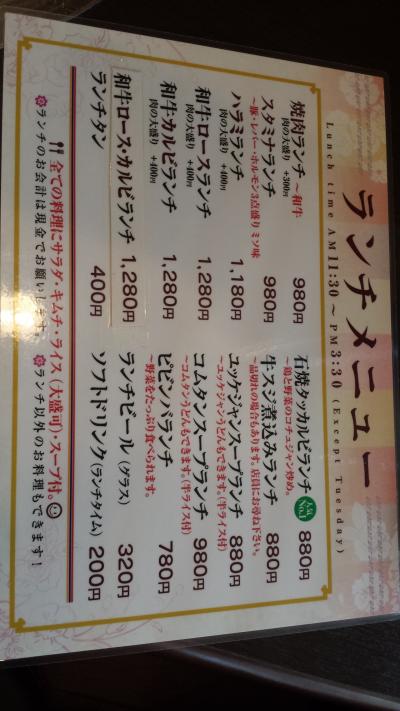 ランチメニュー
Lunch time AM 11:30 ~ PM 3:30 (Except Tuesday)
焼肉ランチ ～和牛 980円
肉の大盛り +300円
スタミナランチ 980円
～豚・レバー・ホルモン3点盛り ミソ味
ハラミランチ 1,180円
肉の大盛り +400円
和牛ロースランチ 1,280円
肉の大盛り +400円
和牛カルビランチ 1,280円
肉の大盛り +400円
和牛ロース・カルビランチ 1,280円
ランチタン 400円
石焼タッカルビランチ 人気No.1 880円
～鶏と野菜のコチュジャン炒め。
牛スジ煮込みランチ 880円
～品切れの場合もあります。店員にお尋ね下さい。
ユッケジャンスープランチ 880円
～ユッケジャンうどんもできます。(半ライス付)
コムタンスープランチ 980円
～コムタンうどんもできます。(半ライス付)
ビビンバランチ 780円
～野菜をたっぷり食べられます。
ランチビール (グラス) 320円
ソフトドリンク (ランチタイム) 200円
全ての料理にサラダ・キムチ・ライス (大盛可)・スープ付。
ランチのお会計は現金でお願いします。 ランチ以外のお料理もできます！